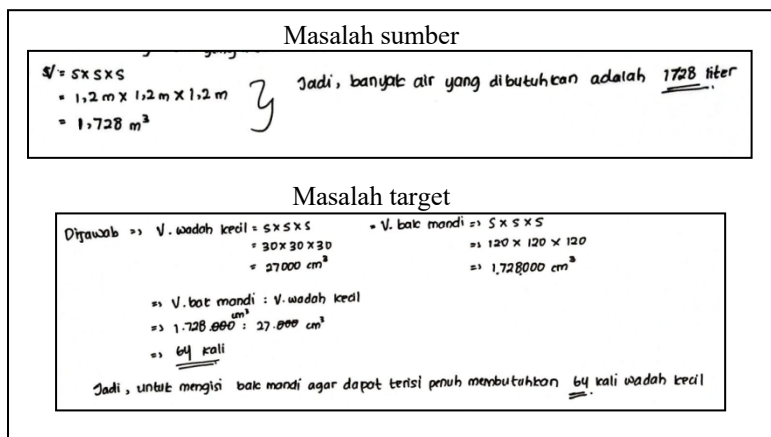 Masalah sumber
V = s x s x s
= 1,2 m x 1,2 m x 1,2 m
= 1,728 m³
Jadi, banyak air yang dibutuhkan adalah 1728 liter
Masalah target
Dijawab => V. wadah kecil = s x s x s
= 30 x 30 x 30
= 27000 cm³
• V. bak mandi => s x s x s
=> 120 x 120 x 120
=> 1.728000 cm³
=> V. bak mandi : V. wadah kecil
=> 1.728.000 cm³ : 27.000 cm³
=> 64 kali
Jadi, untuk mengisi bak mandi agar dapat terisi penuh membutuhkan 64 kali wadah kecil